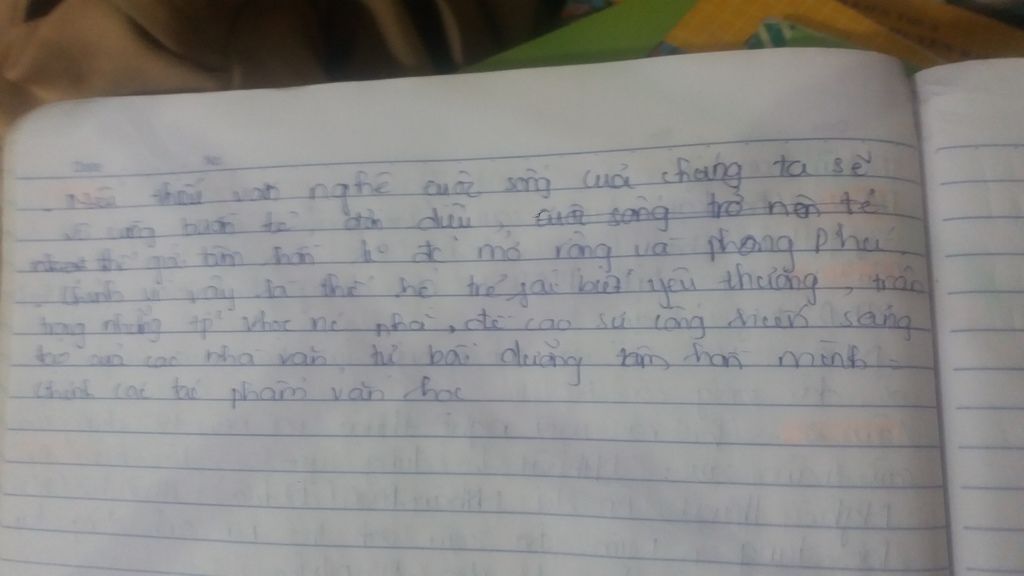 Nếu thiếu văn nghệ cuộc sống của chúng ta sẽ
vô cùng buồn tẻ đơn điệu, cuộc sống trở nên tẻ
tâm hồn mở rộng và phong phú
Chính vì vậy là thế hệ trẻ phải biết yêu thương, trân
trọng những tp' vhọc nc nhà, đề cao sự cống hiến sáng
tạo của các nhà văn tự bồi dưỡng tâm hồn mình =
chính các tác phẩm văn học